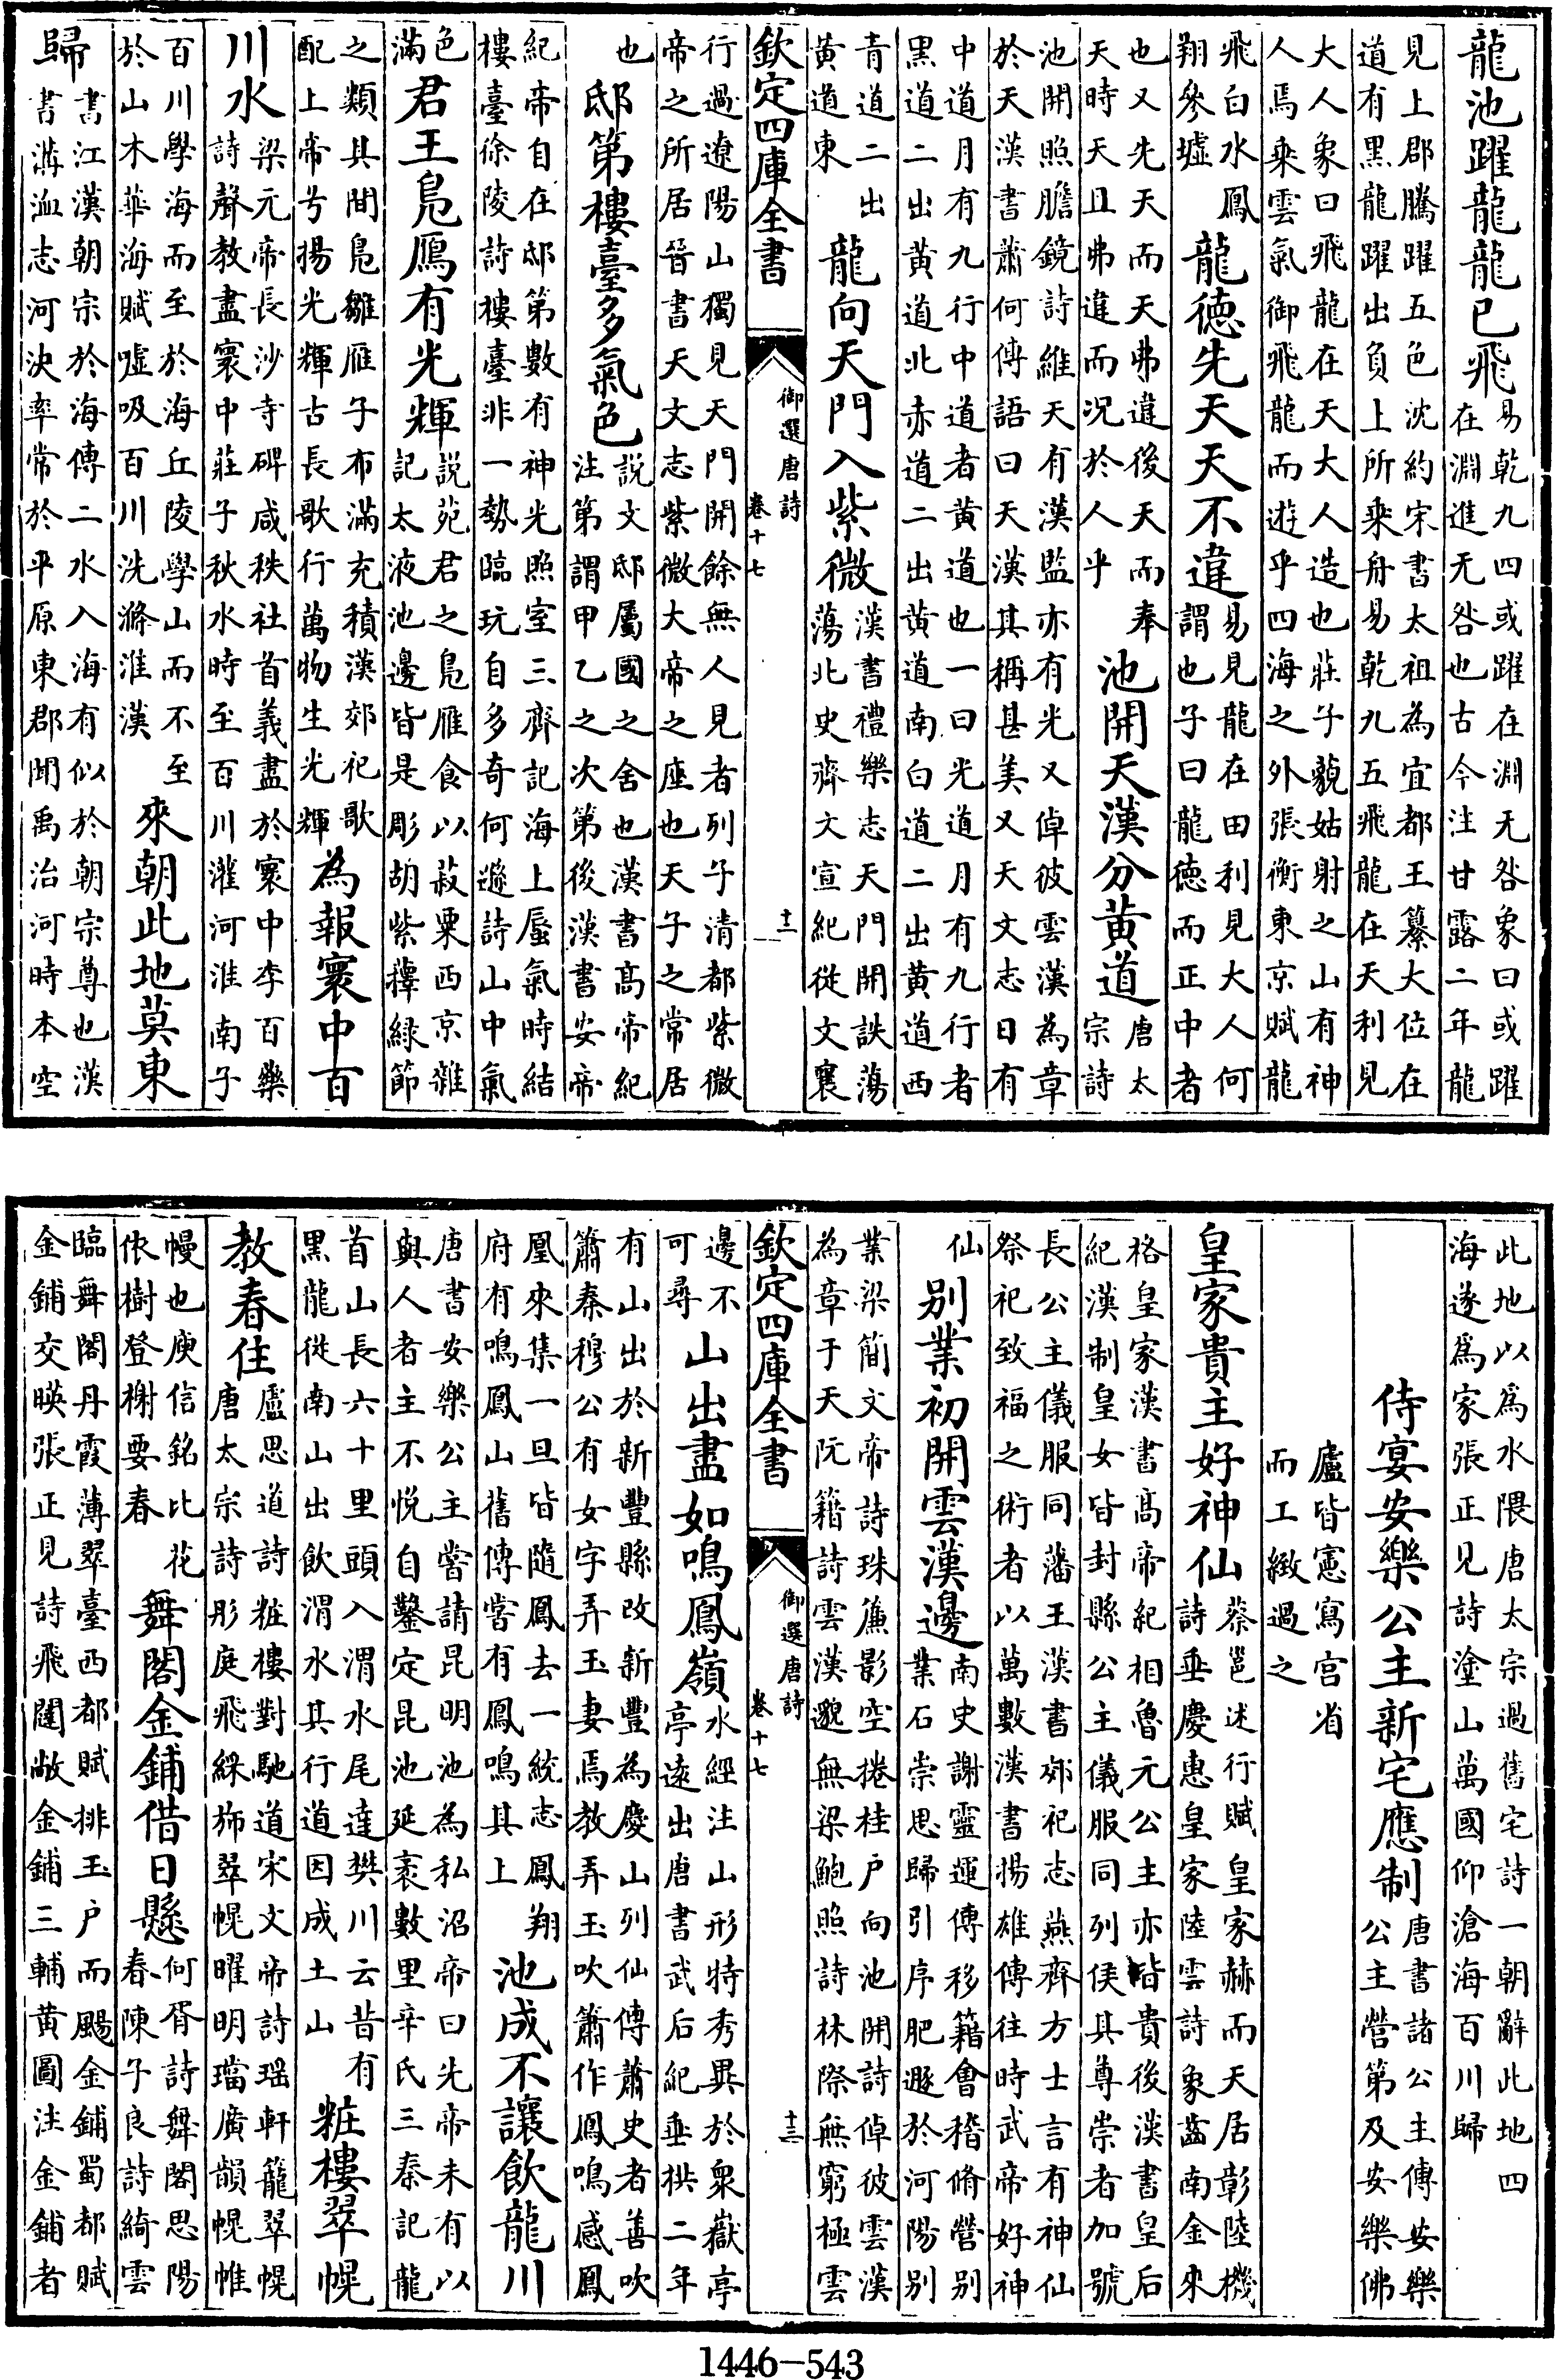 龍池躍龍龍已飛易乾九四或躍在淵无咎象曰或躍在淵進无咎也古今注甘露二年龍
見上郡騰躍五色沈約宋書太祖為宜都王纂大位在道有黑龍躍出負上所乗舟易乾九五飛龍在天利見
大人象曰飛龍在天大人造也莊子藐姑射之山有神人焉乗雲氣御飛龍而遊乎四海之外張衡東京賦龍
飛白水鳳翔參墟龍徳先天天不違易見龍在田利見大人何謂也子曰龍徳而正中者
也又先天而天弗違後天而奉天時天且弗違而况於人乎池開天漢分黄道唐太宗詩
池開照膽鏡詩維天有漢監亦有光又倬彼雲漢為章於天漢書蕭何傳語曰天漢其稱甚美又天文志日有
中道月有九行中道者黄道也一曰光道月有九行者黑道二出黄道北赤道二出黄道南白道二出黄道西
青道二出黄道東龍向天門入紫微漢書禮樂志天門開詄蕩蕩北史齊文宣紀從文襄
欽定四庫全書 御選唐詩 卷十七 十二
行過遼陽山獨見天門開餘無人見者列子清都紫微帝之所居晉書天文志紫微大帝之座也天子之常居
也邸第樓臺多氣色說文邸屬國之舍也漢書髙帝紀注第謂甲乙之次第後漢書安帝
紀帝自在邸第數有神光照室三齊記海上蜃氣時結樓臺徐陵詩樓臺非一勢臨玩自多奇何遜詩山中氣
色滿君王鳧鴈有光輝說苑君之鳧雁食以菽粟西京雜記太液池邊皆是彫胡紫蘀緑節
之類其間鳧雛雁子布滿充積漢郊祀歌配上帝兮揚光輝古長歌行萬物生光輝為報寰中百
川水梁元帝長沙寺碑咸秩社首義盡於寰中李百藥詩聲教盡寰中莊子秋水時至百川灌河淮南子
百川學海而至於海丘陵學山而不至於山木華海賦噓吸百川洗滌淮漢來朝此地莫東
歸書江漢朝宗於海傳二水入海有似於朝宗尊也漢書溝洫志河決率常於平原東郡聞禹治河時本空
此地以爲水隈唐太宗過舊宅詩一朝辭此地四海遂爲家張正見詩塗山萬國仰滄海百川歸
侍宴安樂公主新宅應制唐書諸公主傳安樂公主營第及安樂佛
廬皆憲寫宫省而工緻過之
皇家貴主好神仙蔡邕述行賦皇家赫而天居彰陸機詩垂慶惠皇家陸雲詩象齒南金來
格皇家漢書髙帝紀相魯元公主亦皆貴後漢書皇后紀漢制皇女皆封縣公主儀服同列侯其尊崇者加號
長公主儀服同藩王漢書郊祀志燕齊方士言有神仙祭祀致福之術者以萬數漢書揚雄傳往時武帝好神
仙別業初開雲漢邊南史謝靈運傳移籍會稽脩營別業石崇思歸引序肥遯於河陽别
業梁簡文帝詩珠簾影空捲桂户向池開詩倬彼雲漢為章于天阮籍詩雲漢邈無梁鮑照詩林際無窮極雲
欽定四庫全書 御選唐詩 卷十七 十三
邊不可尋山出盡如鳴鳳嶺水經注山形特秀異於衆嶽亭亭遠出唐書武后紀垂拱二年
有山出於新豐縣改新豐為慶山列仙傳蕭史者善吹簫秦穆公有女字弄玉妻焉教弄玉吹簫作鳳鳴感鳳
凰來集一旦皆隨鳳去一統志鳳翔府有鳴鳳山舊傳嘗有鳳鳴其上池成不讓飲龍川
唐書安樂公主嘗請昆明池為私沼帝曰先帝未有以與人者主不悅自鑿定昆池延袤數里辛氏三秦記龍
首山長六十里頭入渭水尾達樊川云昔有黑龍從南山出飲渭水其行道因成土山粧樓翠幌
教春住盧思道詩粧樓對馳道宋文帝詩瑶軒籠翠幌唐太宗詩彤庭飛綵斾翠幌曜明璫廣韻幌帷
幔也庾信銘比花依樹登榭要春舞閣金鋪借日懸何胥詩舞閣思陽春陳子良詩綺雲
臨舞閣丹霞薄翠臺西都賦排玉户而颺金鋪蜀都賦金鋪交暎張正見詩飛闥敞金鋪三輔黄圖注金鋪者
1446—543